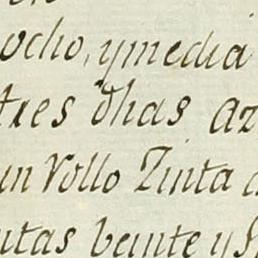 ocho, y media
tres dhas az
un Vollo Zinta
ntas beinte y